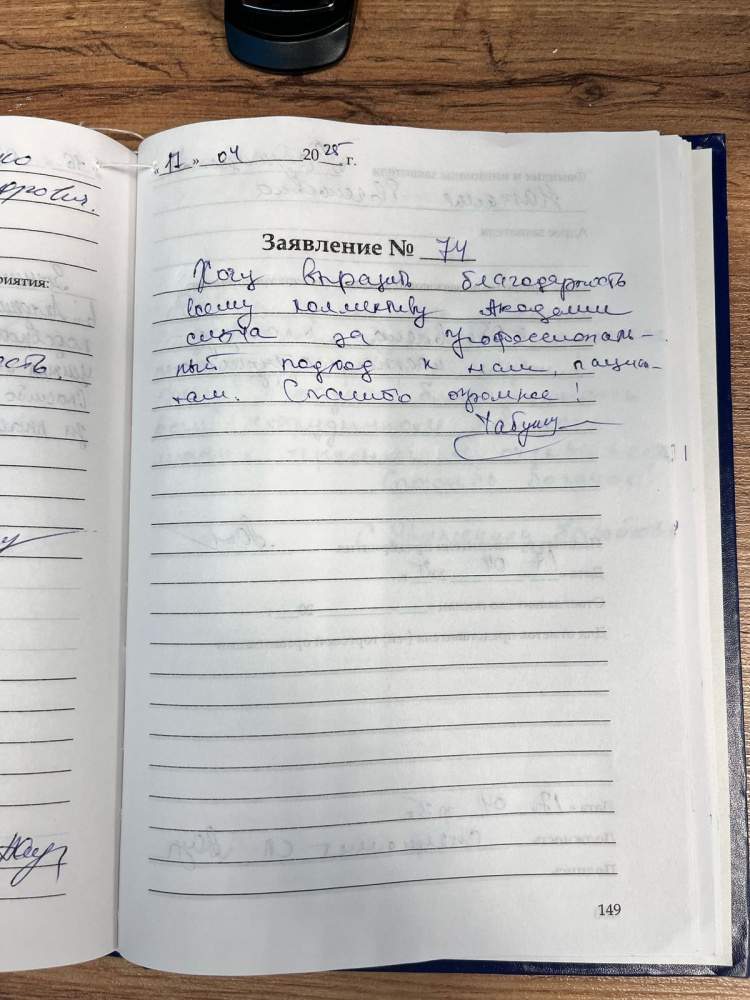 "11" 04 2025 г.
Заявление № 74
Хочу выразить благодарность
всему коллективу Академии
слуха за профессиональ-
ный подход к нам, пациен-
там. Спасибо огромное!
риятия:
149